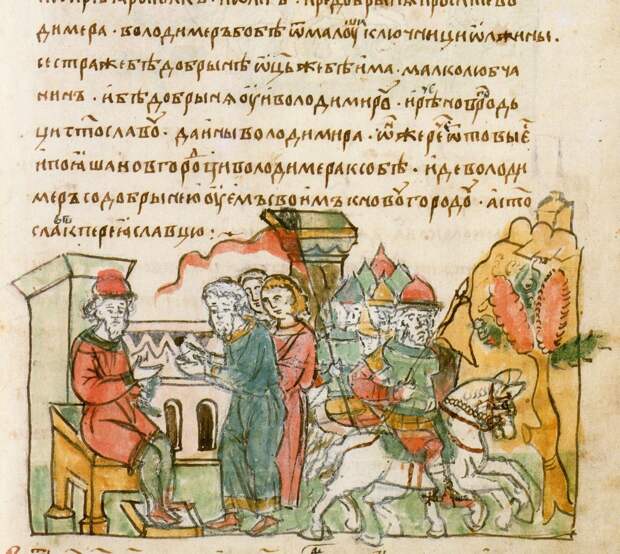 и ре добрынѧ просите во
димера · володимеръ бо бѣ ѿ малоуши ключници ѡлжины ·
сестра же бѣ добрынѣ · ѿць же бѣ има · малко любча
нинъ · и бѣ добрынѧ оуи володимирꙋ · и рѣша новгородь
ци стославꙋ · даи ны володимира · ѡн же рече ѿ то вы е
и поꙗша новгородци володимера к собѣ · иде володи
меръ со добрынею оуемъ своимъ к новꙋгородꙋ · а сто
славъ к переꙗславцю :